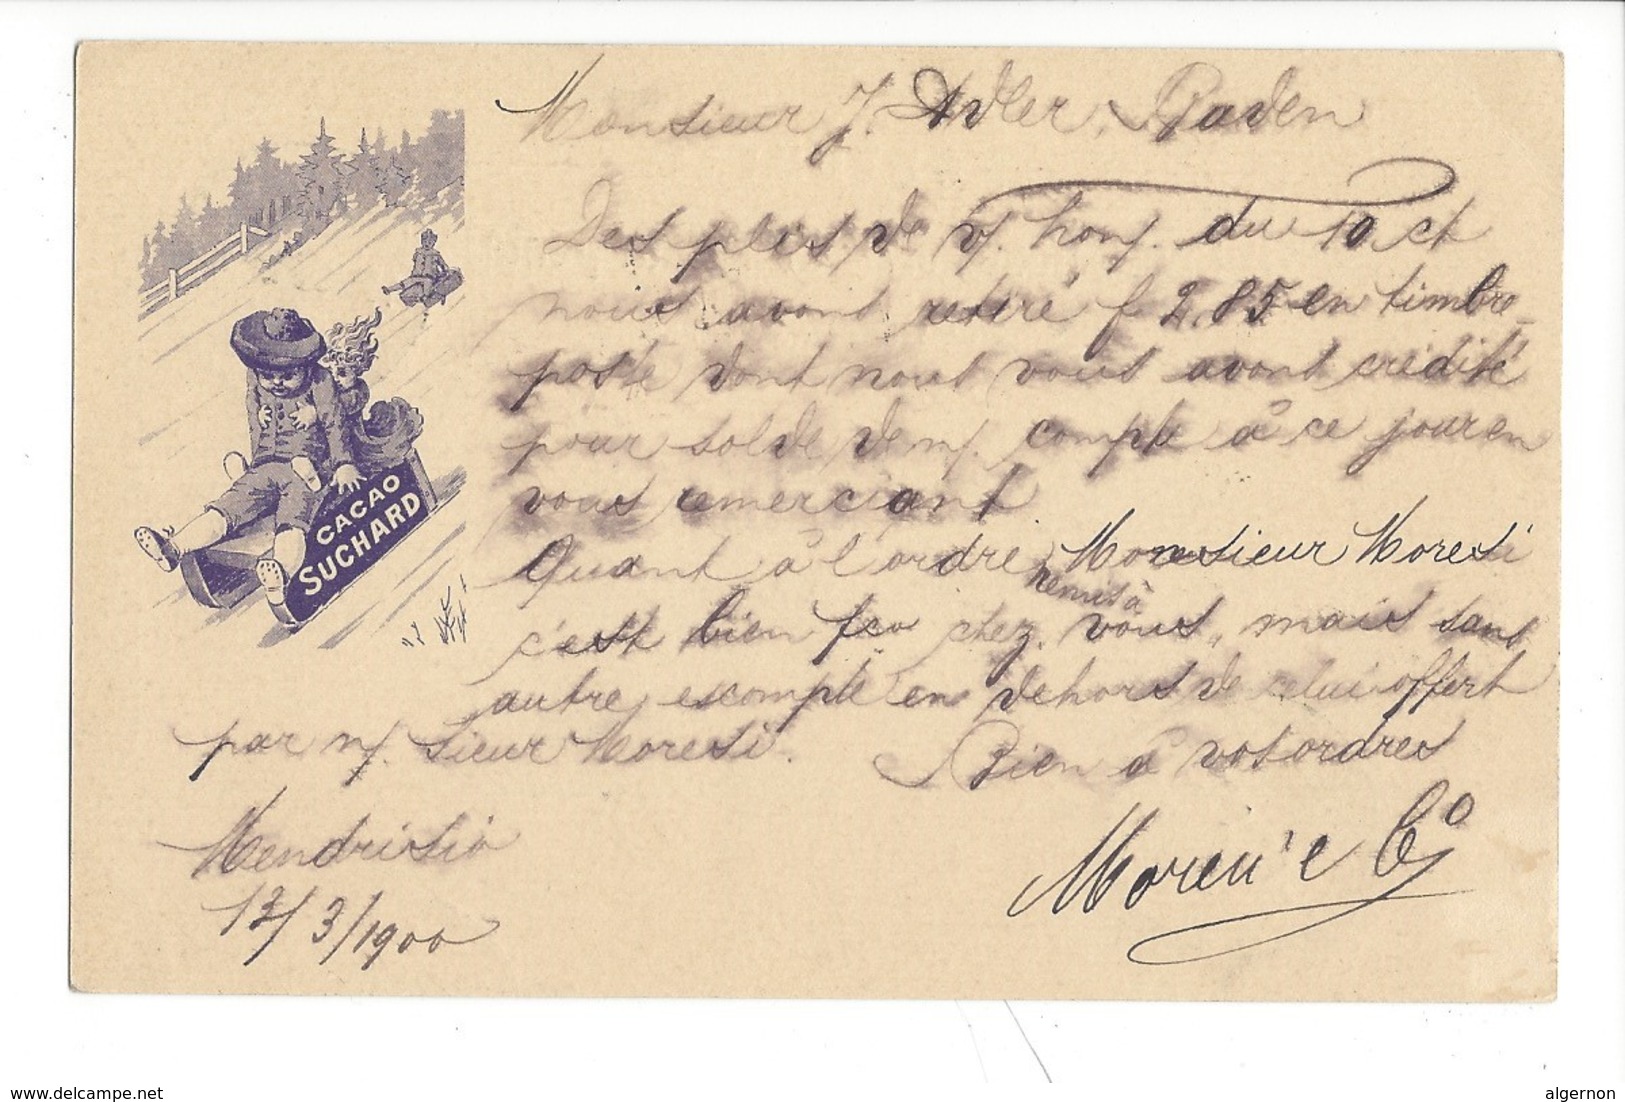 Monsieur J. Adler, Baden
Des plis de v/. hon/. du 10 ct
nous avons retiré f 2,85 en timbre-
poste dont nous vous avons crédité
pour solde de n/. compte à ce jour en
vous remerciant
Quant à l'ordre Monsieur Moresi
remis à
c'est bien fco chez vous, mais sans
autre escompte en dehors de celui offert
par n/. sieur Moresi.
Bien à vos ordres
CACAO
SUCHARD
Mendrisio
12/3/1900
& Co
www.delcampe.net
algernon